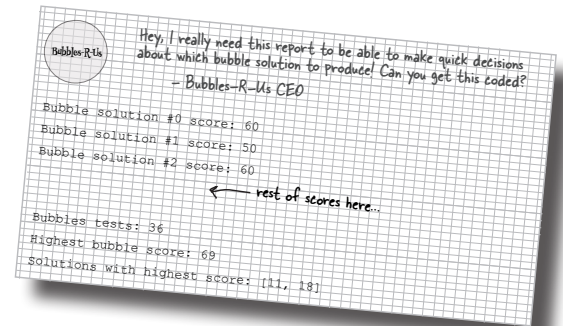 Bubbles-R-Us
Hey, I really need this report to be able to make quick decisions
about which bubble solution to produce! Can you get this coded?
– Bubbles-R-Us CEO
Bubble solution #0 score: 60
Bubble solution #1 score: 50
Bubble solution #2 score: 60
rest of scores here...
Bubbles tests: 36
Highest bubble score: 69
Solutions with highest score: [11, 18]